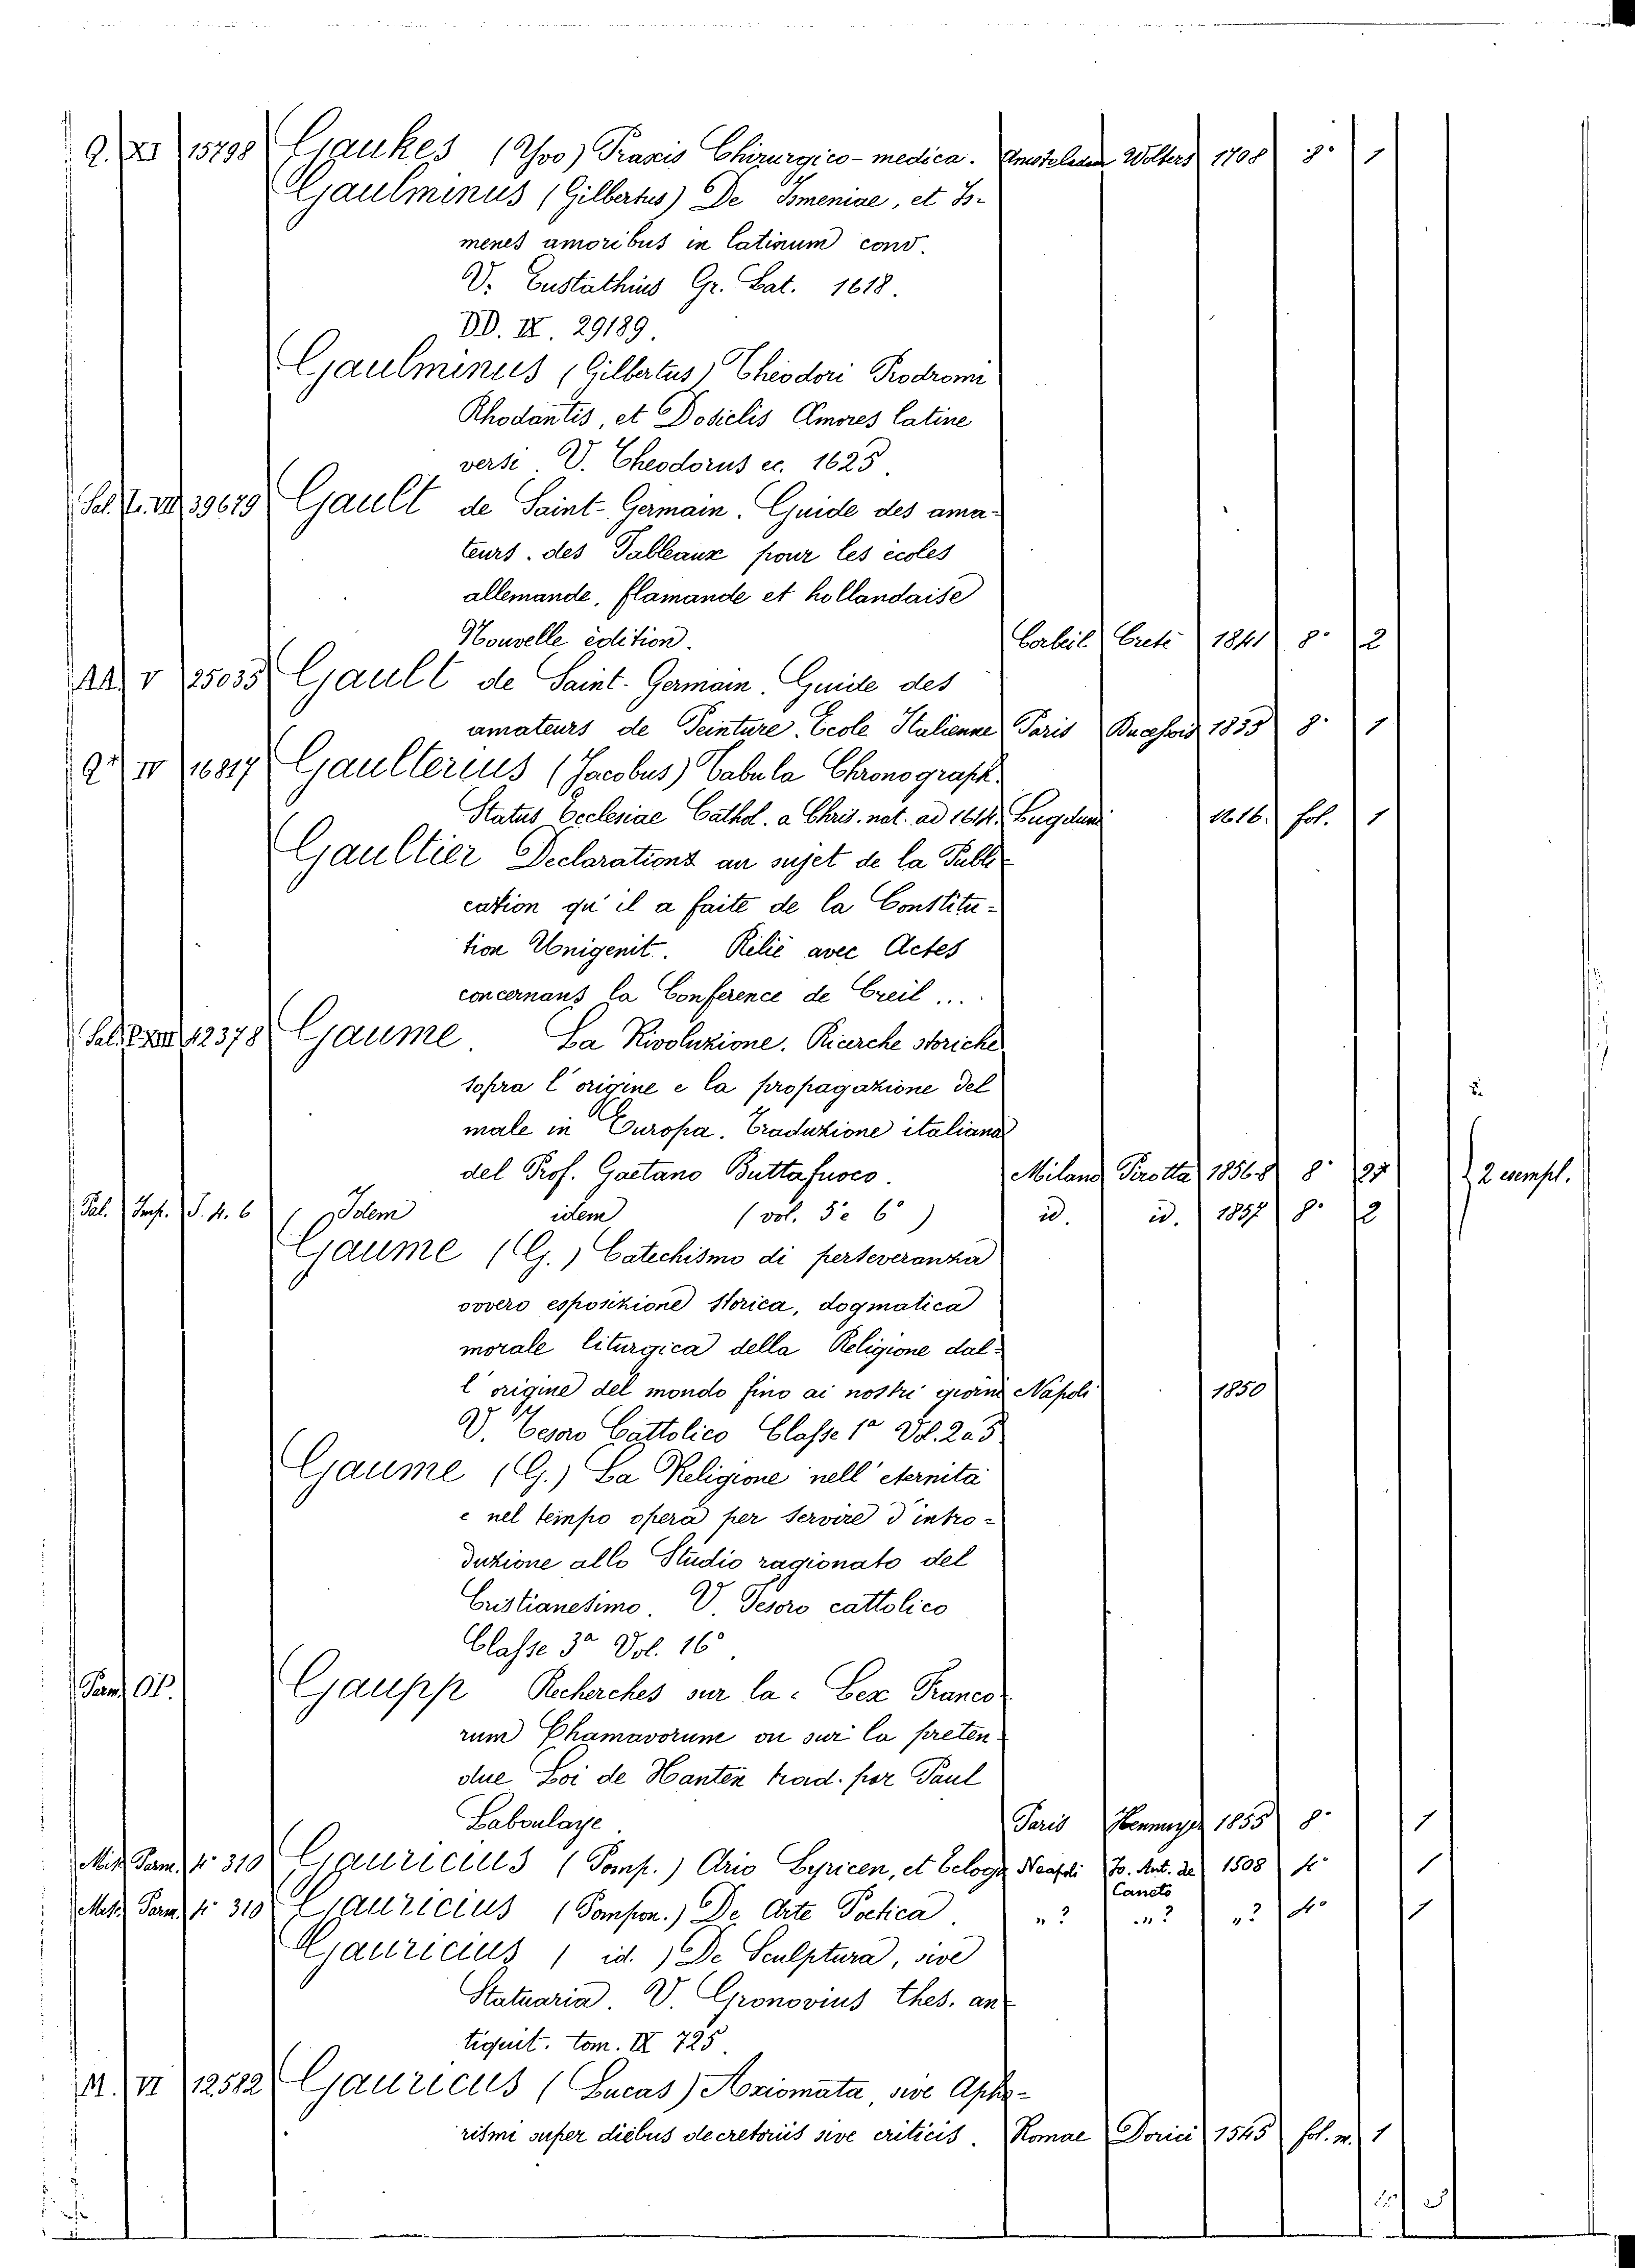 Q. XI 15798 Gaukes (Yvo) Praxis Chirurgico-medica. Amstelodam Wolters 1708 8° 1
Gaulminus (Gilbertus) De Ismeniae, et Is-
menes amoribus in latinum conv.
V. Eustathius Gr. Lat. 1618.
DD. IX. 29189.
Gaulminus (Gilbertus) Theodori Prodromi
Rhodantis, et Dosiclis Amores latine
versi. V. Theodorus ec. 1625.
39679 Gault de Saint-Germain. Guide des ama-
teurs des Tableaux pour les écoles
allemande, flamande et hollandaise
Nouvelle édition. Corbeil Creté 1841 8° 2
AA V 25035 Gault de Saint-Germain. Guide des
amateurs de Peinture. Ecole Italienne Paris 1835 8° 1
IV 16817 Gaulterius (Jacobus) Tabula Chronograph.
Status Ecclesiae Cathol. a Chris. nat. ad 1614. Lugduni 1616. fol. 1
Gaultier Declarations au sujet de la Publi-
cation qu'il a faite de la Constitu-
tion Unigenit. Relié avec Actes
concernans la Conference de Creil ...
12378 Gaume. La Rivoluzione. Ricerche storiche
sopra l'origine e la propagazione del
male in Europa. Traduzione italiana
del Prof. Gaetano Buttafuoco. Milano Pirotta 1856-8 8° 2 esempl.
Pal. Imp. S. 4. 6 Idem idem (vol. 5 e 6°) id. id. 1857 8° 2
Gaume (G.) Catechismo di perseveranza
ovvero esposizione storica, dogmatica
morale liturgica della Religione dal-
l'origine del mondo fino ai nostri giorni Napoli 1850
V. Tesoro Cattolico Classe 1a Vol. 2 a 5
Gaume (G.) La Religione nell'eternità
e nel tempo opera per servire d'intro-
duzione allo Studio ragionato del
Cristianesimo. V. Tesoro cattolico
Classe 3a Vol. 16°.
Parm. Gaupp Recherches sur la Lex Franco-
rum Chamavorum ou sur la préten-
due Loi de Xanten trad. par Paul
Laboulaye. Paris Hennuyer 1855 8° 1
Misc. Parm. 4° 310 Gauricius (Pomp.) Ario Lyricen, et Eclogae Neapoli Jo. Ant. de 1508 4° 1
Caneto
Misc. Parm. 4° 310 Gauricius (Pompon.) De Arte Poetica. " ? " ? " ? 4° 1
Gauricius (id.) De Sculptura, sive
Statuaria. V. Gronovius thes. an-
tiquit. tom. IX 725.
M. VI 12582 Gauricus (Lucas) Axiomata, sive Apho-
rismi super diebus decretoriis sive criticis. Romae Dorici 1545 fol. m. 1